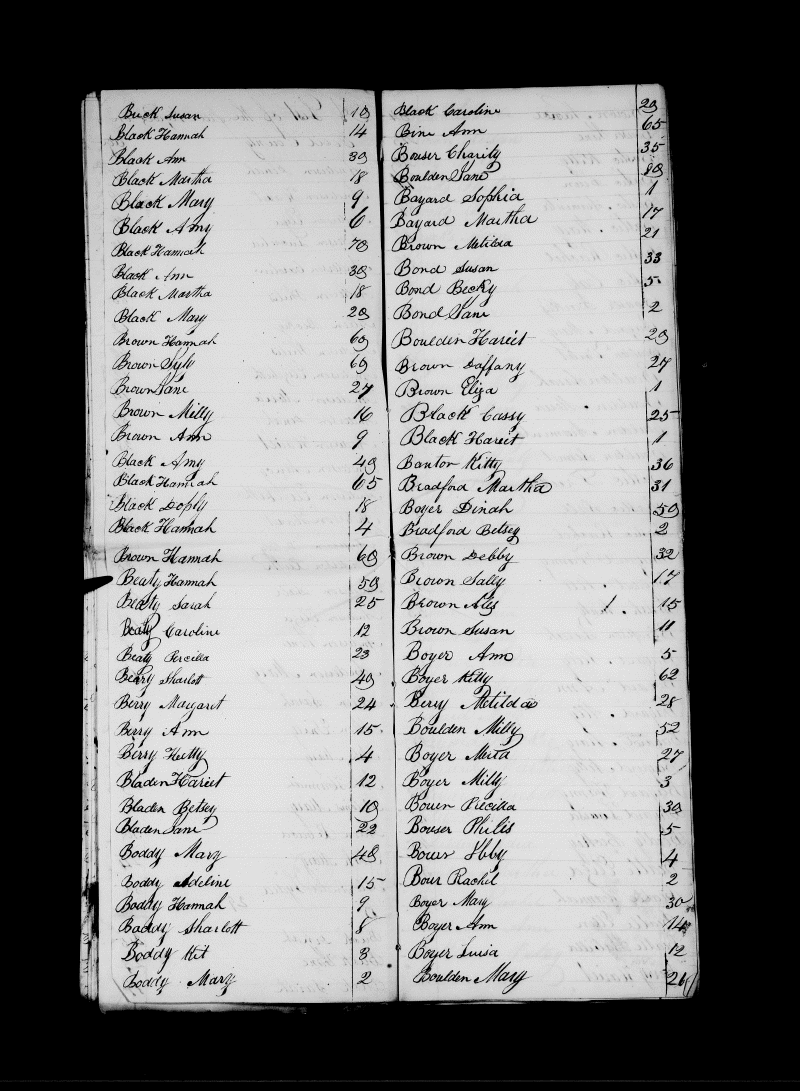 Buck Susan 10
Black Hannah 14
Black Ann 30
Black Martha 18
Black Mary 9
Black Amy 6
Black Hannah 70
Black Ann 30
Black Martha 18
Black Mary 20
Brown Hannah 60
Brown Sylv 60
Brown Jane 27
Brown Milly 16
Brown Ann 9
Black Amy 40
Black Hannah 65
Black Dophy 18
Black Hannah 4
Brown Hannah 60
Beaty Hannah 50
Beaty Sarah 25
Beaty Caroline 12
Beaty Percilla 23
Berry Sharlott 40
Berry Margaret 24
Berry Ann 15
Berry Hetty 4
Bladen Hariet 12
Bladen Betsey 10
Bladen Jane 22
Boddy Mary 40
Boddy Adeline 15
Boddy Hannah 9
Baddy Sharlott 8
Boddy Kit 3
Boddy Mary 2
Black Caroline 20
Bine Ann 65
Bouser Charity 35
Boulden Jane 80
Bayard Sophia 1
Bayard Martha 17
Brown Metilda 21
Bond Susan 33
Bond Becky 5
Bond Jane 2
Boulden Hariet 20
Brown Daffany 27
Brown Eliza 1
Black Cassy 25
Black Hareit 1
Banton Kitty 36
Bradford Martha 31
Boyer Dinah 50
Bradford Betsey 2
Brown Debby 32
Brown Sally 17
Brown 15
Brown Susan 11
Boyer Ann 5
Boyer Kitty 62
Berry Metilda 28
Boulden Milly 52
Boyer Meria 27
Boyer Milly 3
Precilla 30
Bouser Philis 5
4
Bour Rachel 2
Boyer Mary 30
Boyer Ann 14
Boyer Luisa 12
Boulden Mary 26